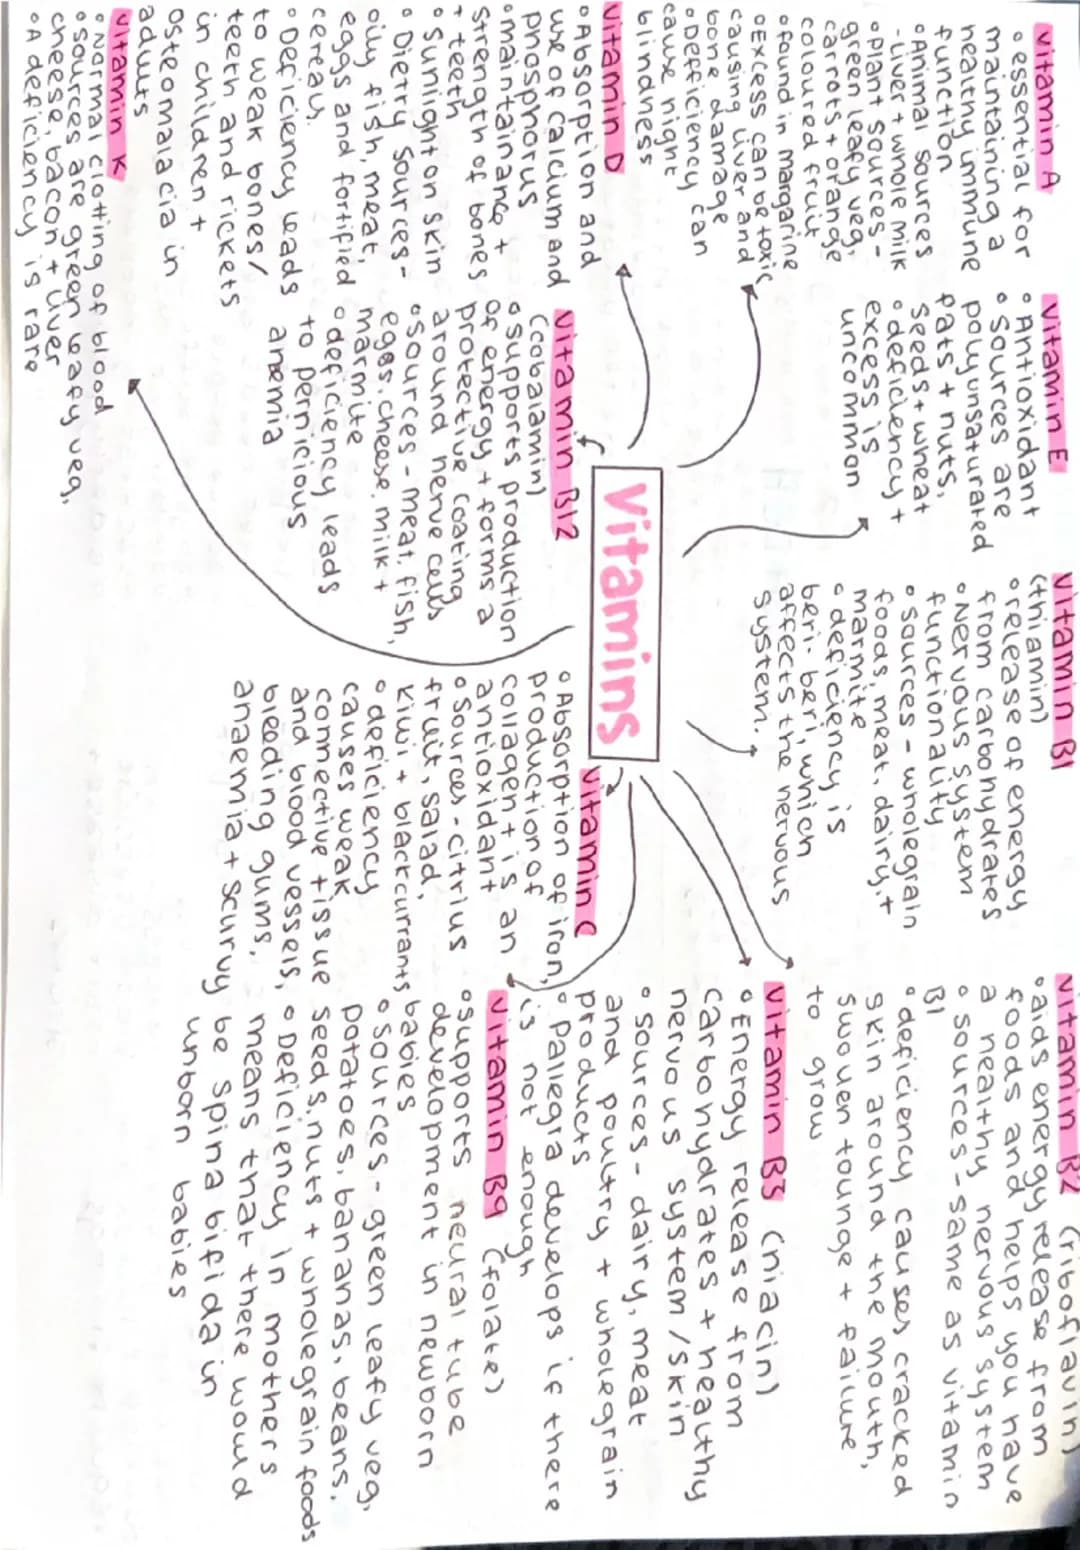 Vitamins
Vitamin A
• essential for
maintaining a
healthy immune
function
• Animal sources
- Liver + whole milk
• Plant sources -
green leafy veg,
carrots + orange
coloured fruit
• found in margarine
• Excess can be toxic
causing liver and
bone damage
• Defficiency can
cause night
blindness
Vitamin E
• Antioxidant
• Sources are
polyunsaturated
fats + nuts,
seeds + wheat
• deficiency +
excess is
uncommon
Vitamin B1
(thiamin)
• release of energy
from carbohydrates
• Nervous system
functionality
• sources - wholegrain
foods, meat, dairy, +
marmite
• deficiency is
beri-beri, which
affects the nervous
system.
Vitamin B2 (riboflavin)
• aids energy release from
foods and helps you have
a healthy nervous system
• sources - same as vitamin
B1
• deficiency causes cracked
skin around the mouth,
swollen tounge + failure
to grow
Vitamin D
• Absorption and
use of calcium and
phosphorus
• maintainance +
strength of bones
+ teeth
• sunlight on skin
• Dietry sources -
oily fish, meat
eggs and fortified
cereals.
• Deficiency leads
to weak bones/
teeth and rickets
in children +
Osteomalacia in
adults
Vitamin B12
(cobalamin)
• supports production
of energy + forms a
protective coating
around nerve cells
• sources - meat, fish,
eggs, cheese, milk +
marmite
• deficiency leads
to pernicious
anemia
Vitamin C
• Absorption of iron,
production of
collagen + is an
antioxidant
• Sources - citrius
fruit, salad,
kiwi + blackcurrants
• deficiency
causes weak
connective tissue
and blood vessels,
bleeding gums,
anaemia + scurvy
Vitamin B3 (niacin)
• Energy release from
carbohydrates + healthy
nervous system / skin
• Sources - dairy, meat
and poultry + wholegrain
products
• Pallegra develops if there
is not enough
Vitamin B9 (folate)
• supports neural tube
development in newborn
babies
• sources - green leafy veg,
potatoes, bananas, beans,
seeds, nuts + wholegrain foods
• Deficiency in mothers
means that there would
be spina bifida in
unborn babies
Vitamin K
• Normal clotting of blood
• sources are green leafy veg,
cheese, bacon + liver
• A deficiency is rare